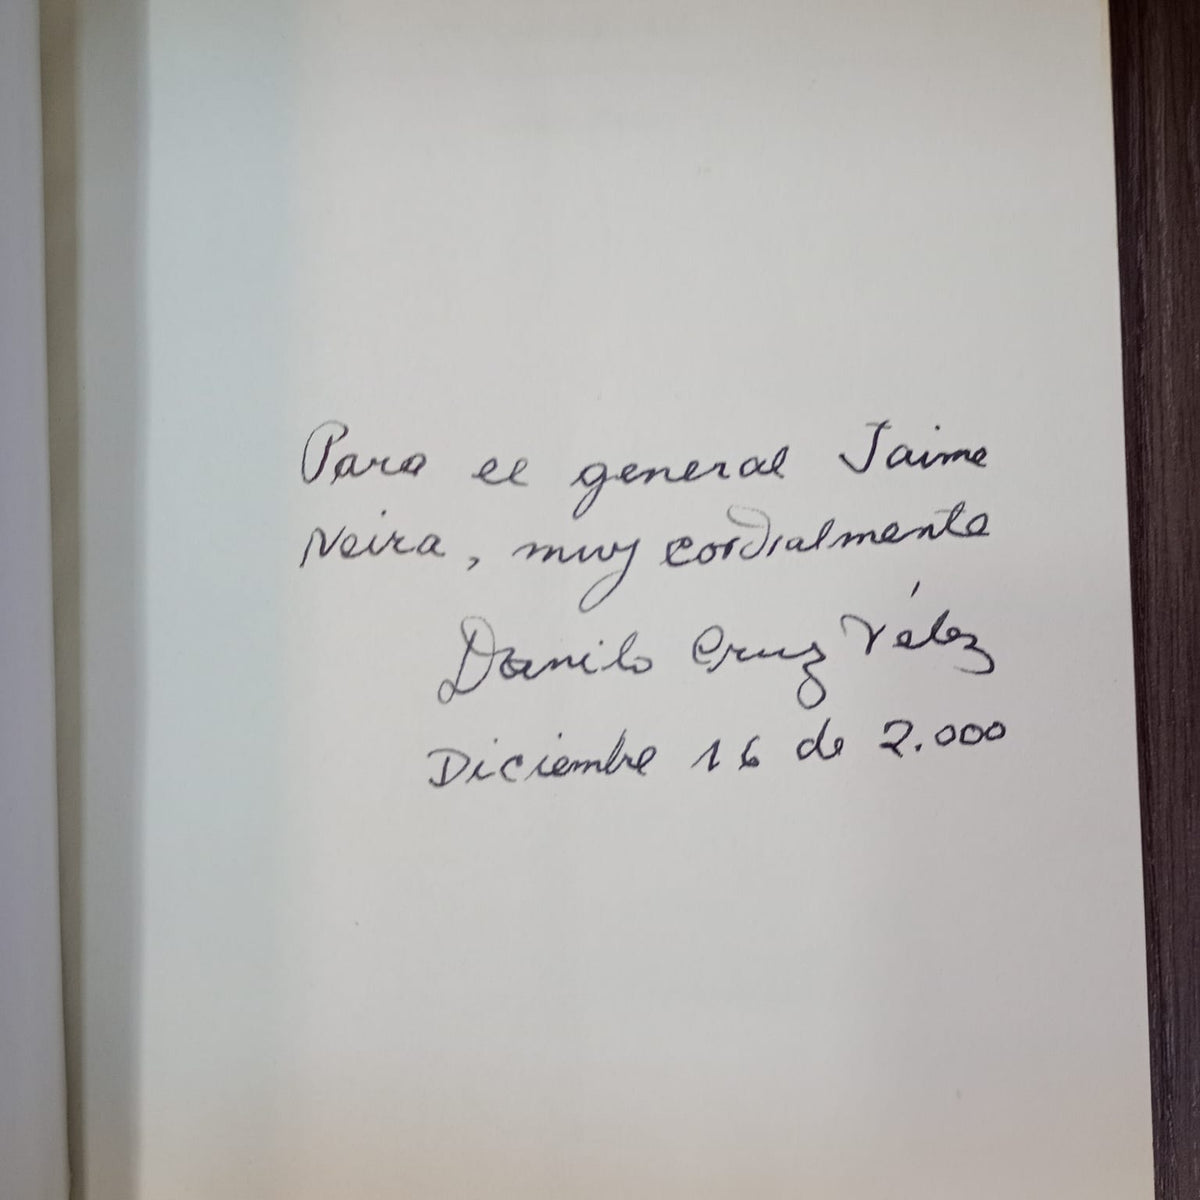 Para el general Jaime
Neira, muy cordialmente
Danilo Cruz Vélez
Diciembre 16 de 2.000